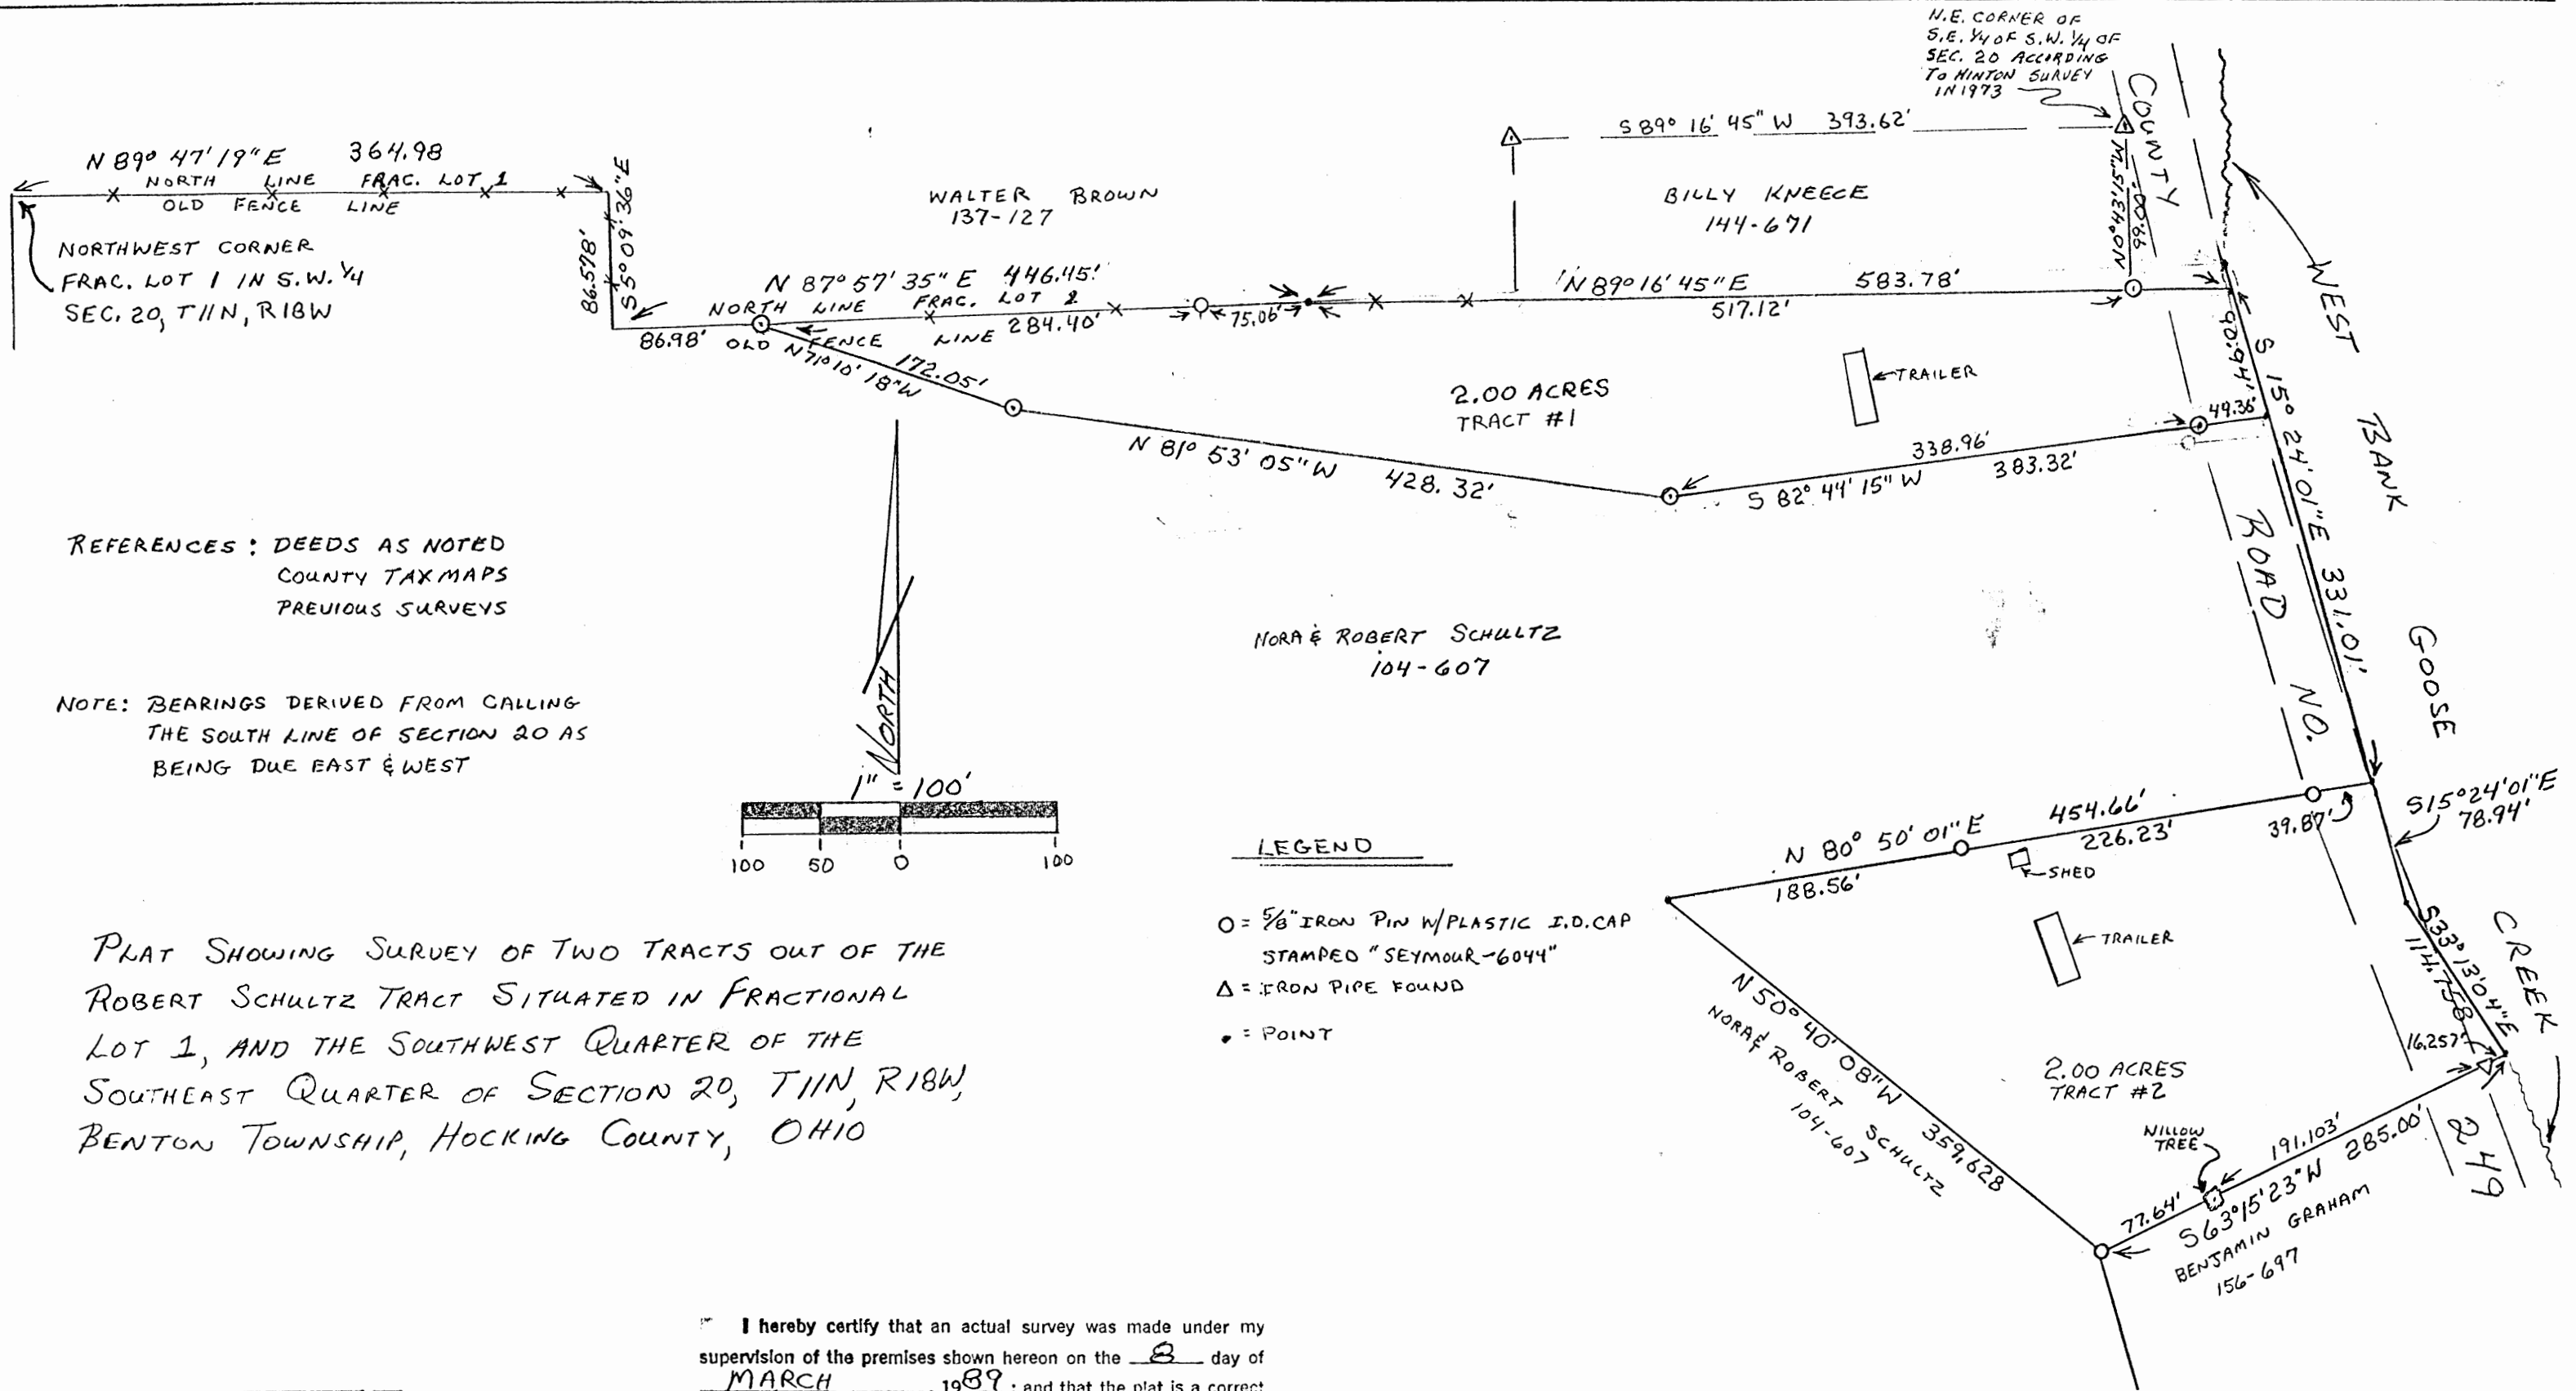 N.E. CORNER OF
S.E. 1/4 OF S.W. 1/4 OF
SEC. 20 ACCORDING
TO HINTON SURVEY
IN 1973
COUNTY
S 89° 16' 45" W 393.62'
N 0° 43' 15" W
99.00'
N 89° 47' 19" E 364.98
NORTH LINE FRAC. LOT 1
OLD FENCE LINE
NORTHWEST CORNER
FRAC. LOT 1 IN S.W. 1/4
SEC. 20, T11N, R18W
S 5° 09' 36" E
86.578'
WALTER BROWN
137-127
BILLY KNEECE
144-671
N 87° 57' 35" E 446.45'
NORTH LINE FRAC. LOT
284.40'
75.06'
86.98' OLD FENCE LINE
N 71° 10' 18" W
172.05'
N 89° 16' 45" E 583.78'
517.12'
WEST BANK GOOSE CREEK
S 15° 24' 01" E 331.01'
TRAILER
2.00 ACRES
TRACT #1
49.36'
N 81° 53' 05" W 428.32'
338.96'
S 82° 44' 15" W 383.32'
ROAD NO. 249
REFERENCES : DEEDS AS NOTED
COUNTY TAX MAPS
PREVIOUS SURVEYS
NORA & ROBERT SCHULTZ
104-607
NOTE: BEARINGS DERIVED FROM CALLING
THE SOUTH LINE OF SECTION 20 AS
BEING DUE EAST & WEST
NORTH
1" = 100'
100 50 0 100
S15°24'01"E
78.94'
N 80° 50' 01" E 454.66'
188.56' 226.23' 39.87'
SHED
LEGEND
O = 5/8" IRON PIN W/PLASTIC I.D. CAP
STAMPED "SEYMOUR-6044"
Δ = IRON PIPE FOUND
• = POINT
PLAT SHOWING SURVEY OF TWO TRACTS OUT OF THE
ROBERT SCHULTZ TRACT SITUATED IN FRACTIONAL
LOT 1, AND THE SOUTHWEST QUARTER OF THE
SOUTHEAST QUARTER OF SECTION 20, T11N, R18W,
BENTON TOWNSHIP, HOCKING COUNTY, OHIO
TRAILER
S33°13'04"E
114.758
16.257'
N 50° 40' 08" W 359.628
NORA & ROBERT SCHULTZ
104-607
2.00 ACRES
TRACT #2
WILLOW
TREE
191.103'
77.64'
S 63°15'23" W 285.00'
BENJAMIN GRAHAM
156-697
I hereby certify that an actual survey was made under my
supervision of the premises shown hereon on the 8 day of
MARCH 1989 ; and that the plat is a correct